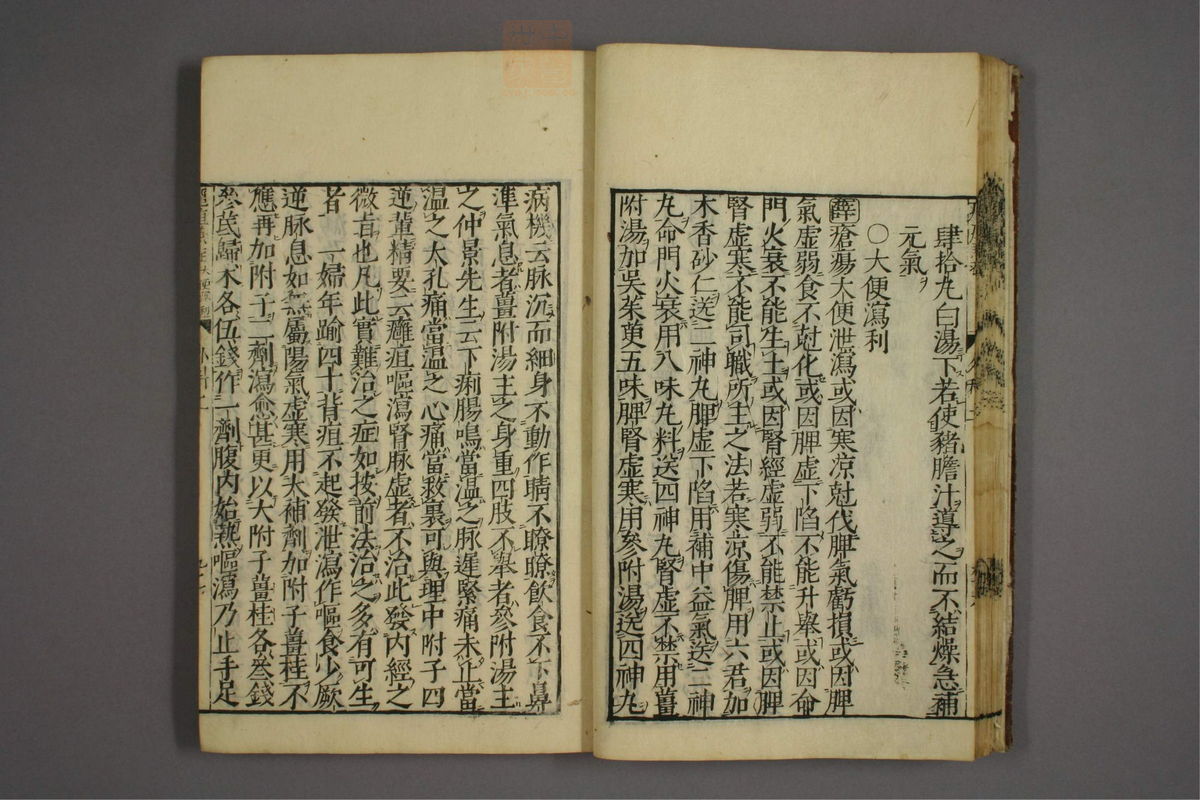 肆拾九曰湯下若使豬膽汁導之而不結燥急補
元氣
○大便瀉利
薛瘡瘍大便泄瀉或因寒涼尅伐脾氣虧損或因脾
氣虛弱食不尅化或因脾虛下陷不能升舉或因命
門火衰不能生土或因腎經虛弱不能禁止或因脾
腎虛寒不能司職所主之法若寒涼傷脾用六君加
木香砂仁送二神丸脾虛下陷用補中益氣送二神
丸命門火衰用八味丸料送四神丸腎虛不禁用薑
附湯加吳茱萸五味脾腎虛寒用參附湯送四神丸
病機云脉沉而細身不動作睛不瞭瞭飲食不下鼻
準氣息者薑附湯主之身重四肢不舉者參附湯主
之仲景先生云下痢腸鳴當溫之脉遲緊痛未止當
溫之大孔痛當溫之心痛當救裏可與理中附子四
逆輩精要云癰疽嘔瀉腎脉虛者不治此發內經之
微旨也凡此實難治之症如按前法治之多有可生
者 一婦年踰四十背疽不起發泄瀉作嘔食少厥
逆脉息如無屬陽氣虛寒用大補劑加附子薑桂不
應再加附子二劑瀉愈甚更以大附子薑桂各叁錢
參芪歸朮各伍錢作一劑腹內始熱嘔瀉乃止手足